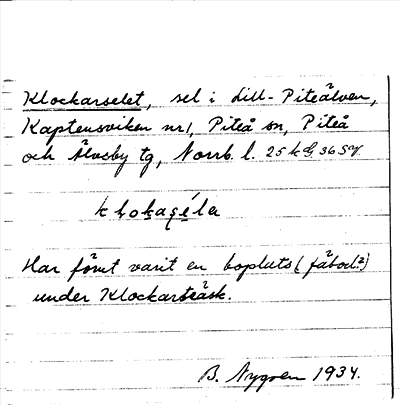 Klockarselet, sel i Lill-Piteälven,
Kaptensviken nr1, Piteå sn, Piteå
och Älvsby tg, Norrb. l. 25 k 36 SV
klokaşé̱la
Har förut varit en boplats (fäbod?)
under Klockarträsk.
B. Nygren 1934.